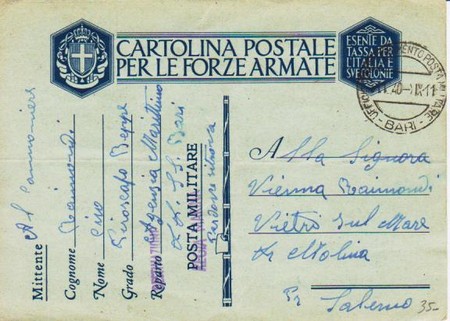 CARTOLINA POSTALE
PER LE FORZE ARMATE
ESENTE DA
TASSA PER
L'ITALIA E
SUE COLONIE
POSTA MILITARE
BARI
Mittente Al Cannoniere
Cognome Raimondi
Nome Ciro
Grado Piroscafo Beppe
Reparto Agenzia Marittima
Bari
POSTA MILITARE
Alla Signora
Vienna Raimondi
Vietri Sul Mare
Molina
Pr Salerno
35-